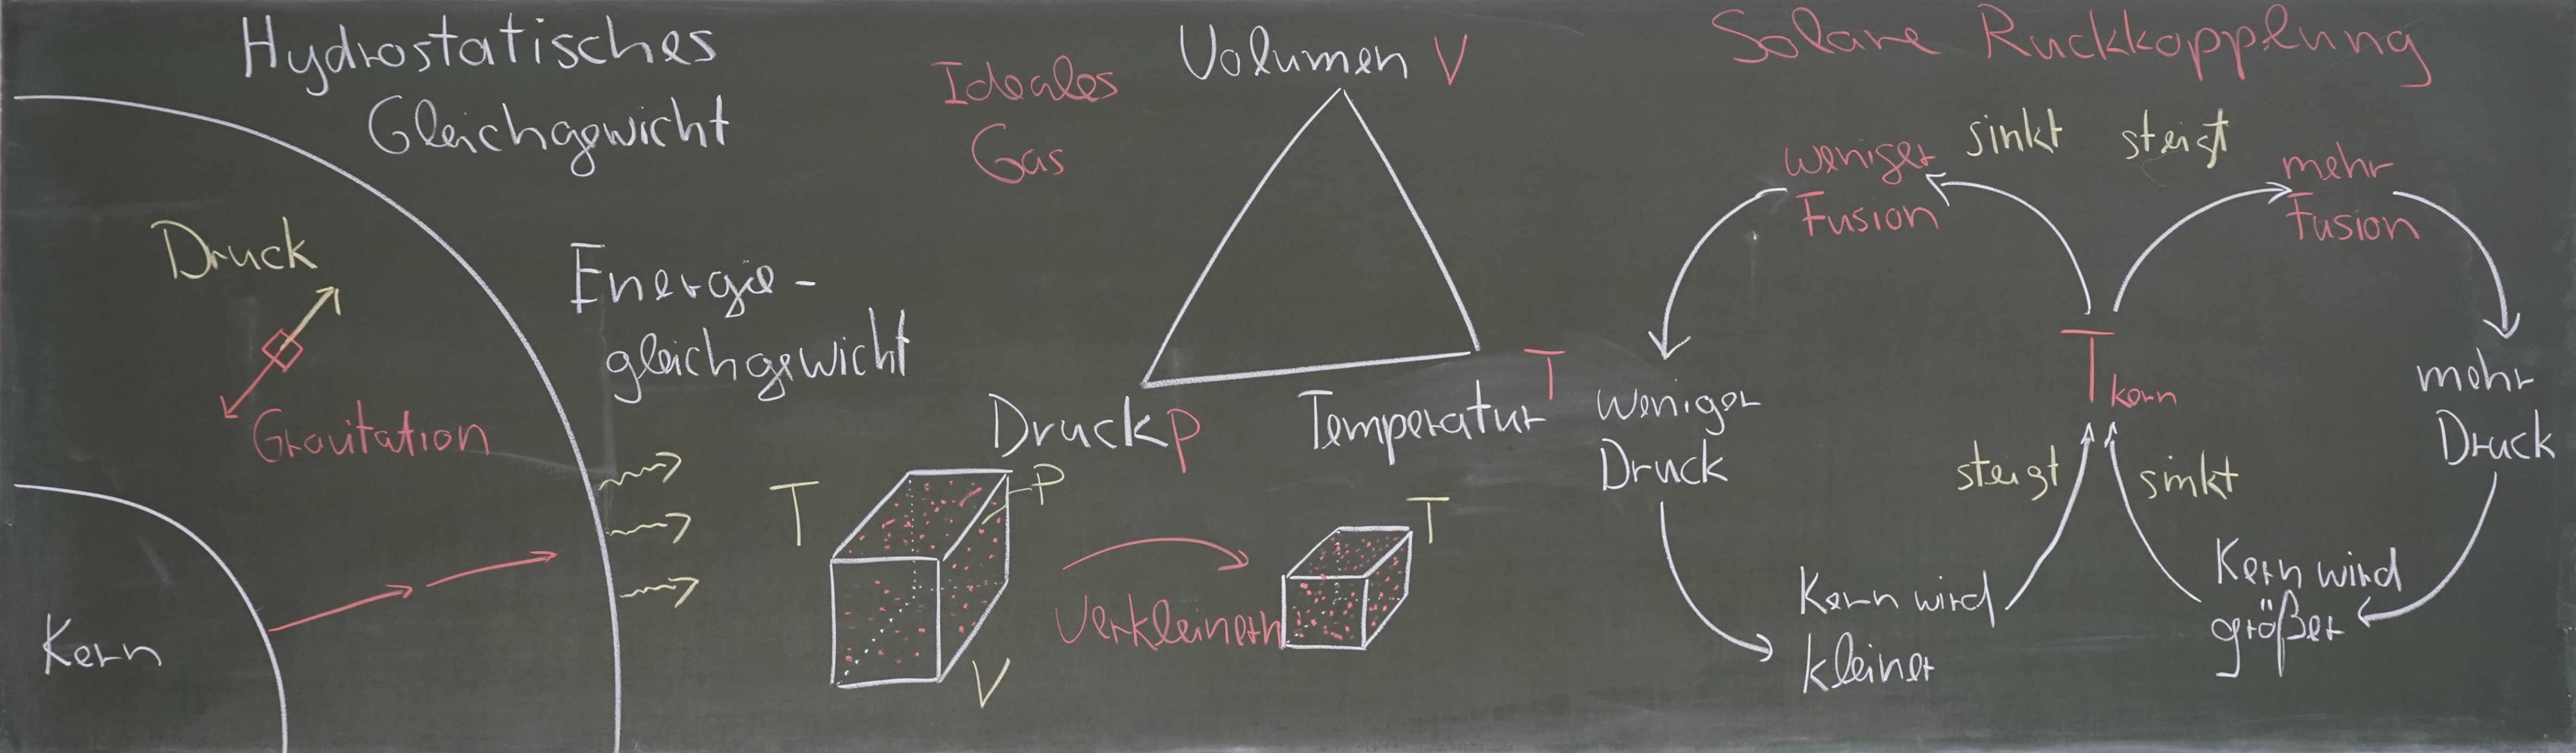 Hydrostatisches
Gleichgewicht
Druck
Gravitation
Kern
Energie-
gleichgewicht
Ideales
Gas
Volumen V
Druck p
Temperatur T
T
P
V
Verkleinern
T
Solare Ruckkopplung
weniger
Fusion
sinkt
steigt
mehr
Fusion
T kern
weniger
Druck
mehr
Druck
steigt
sinkt
Kern wird
kleiner
Kern wird
größer